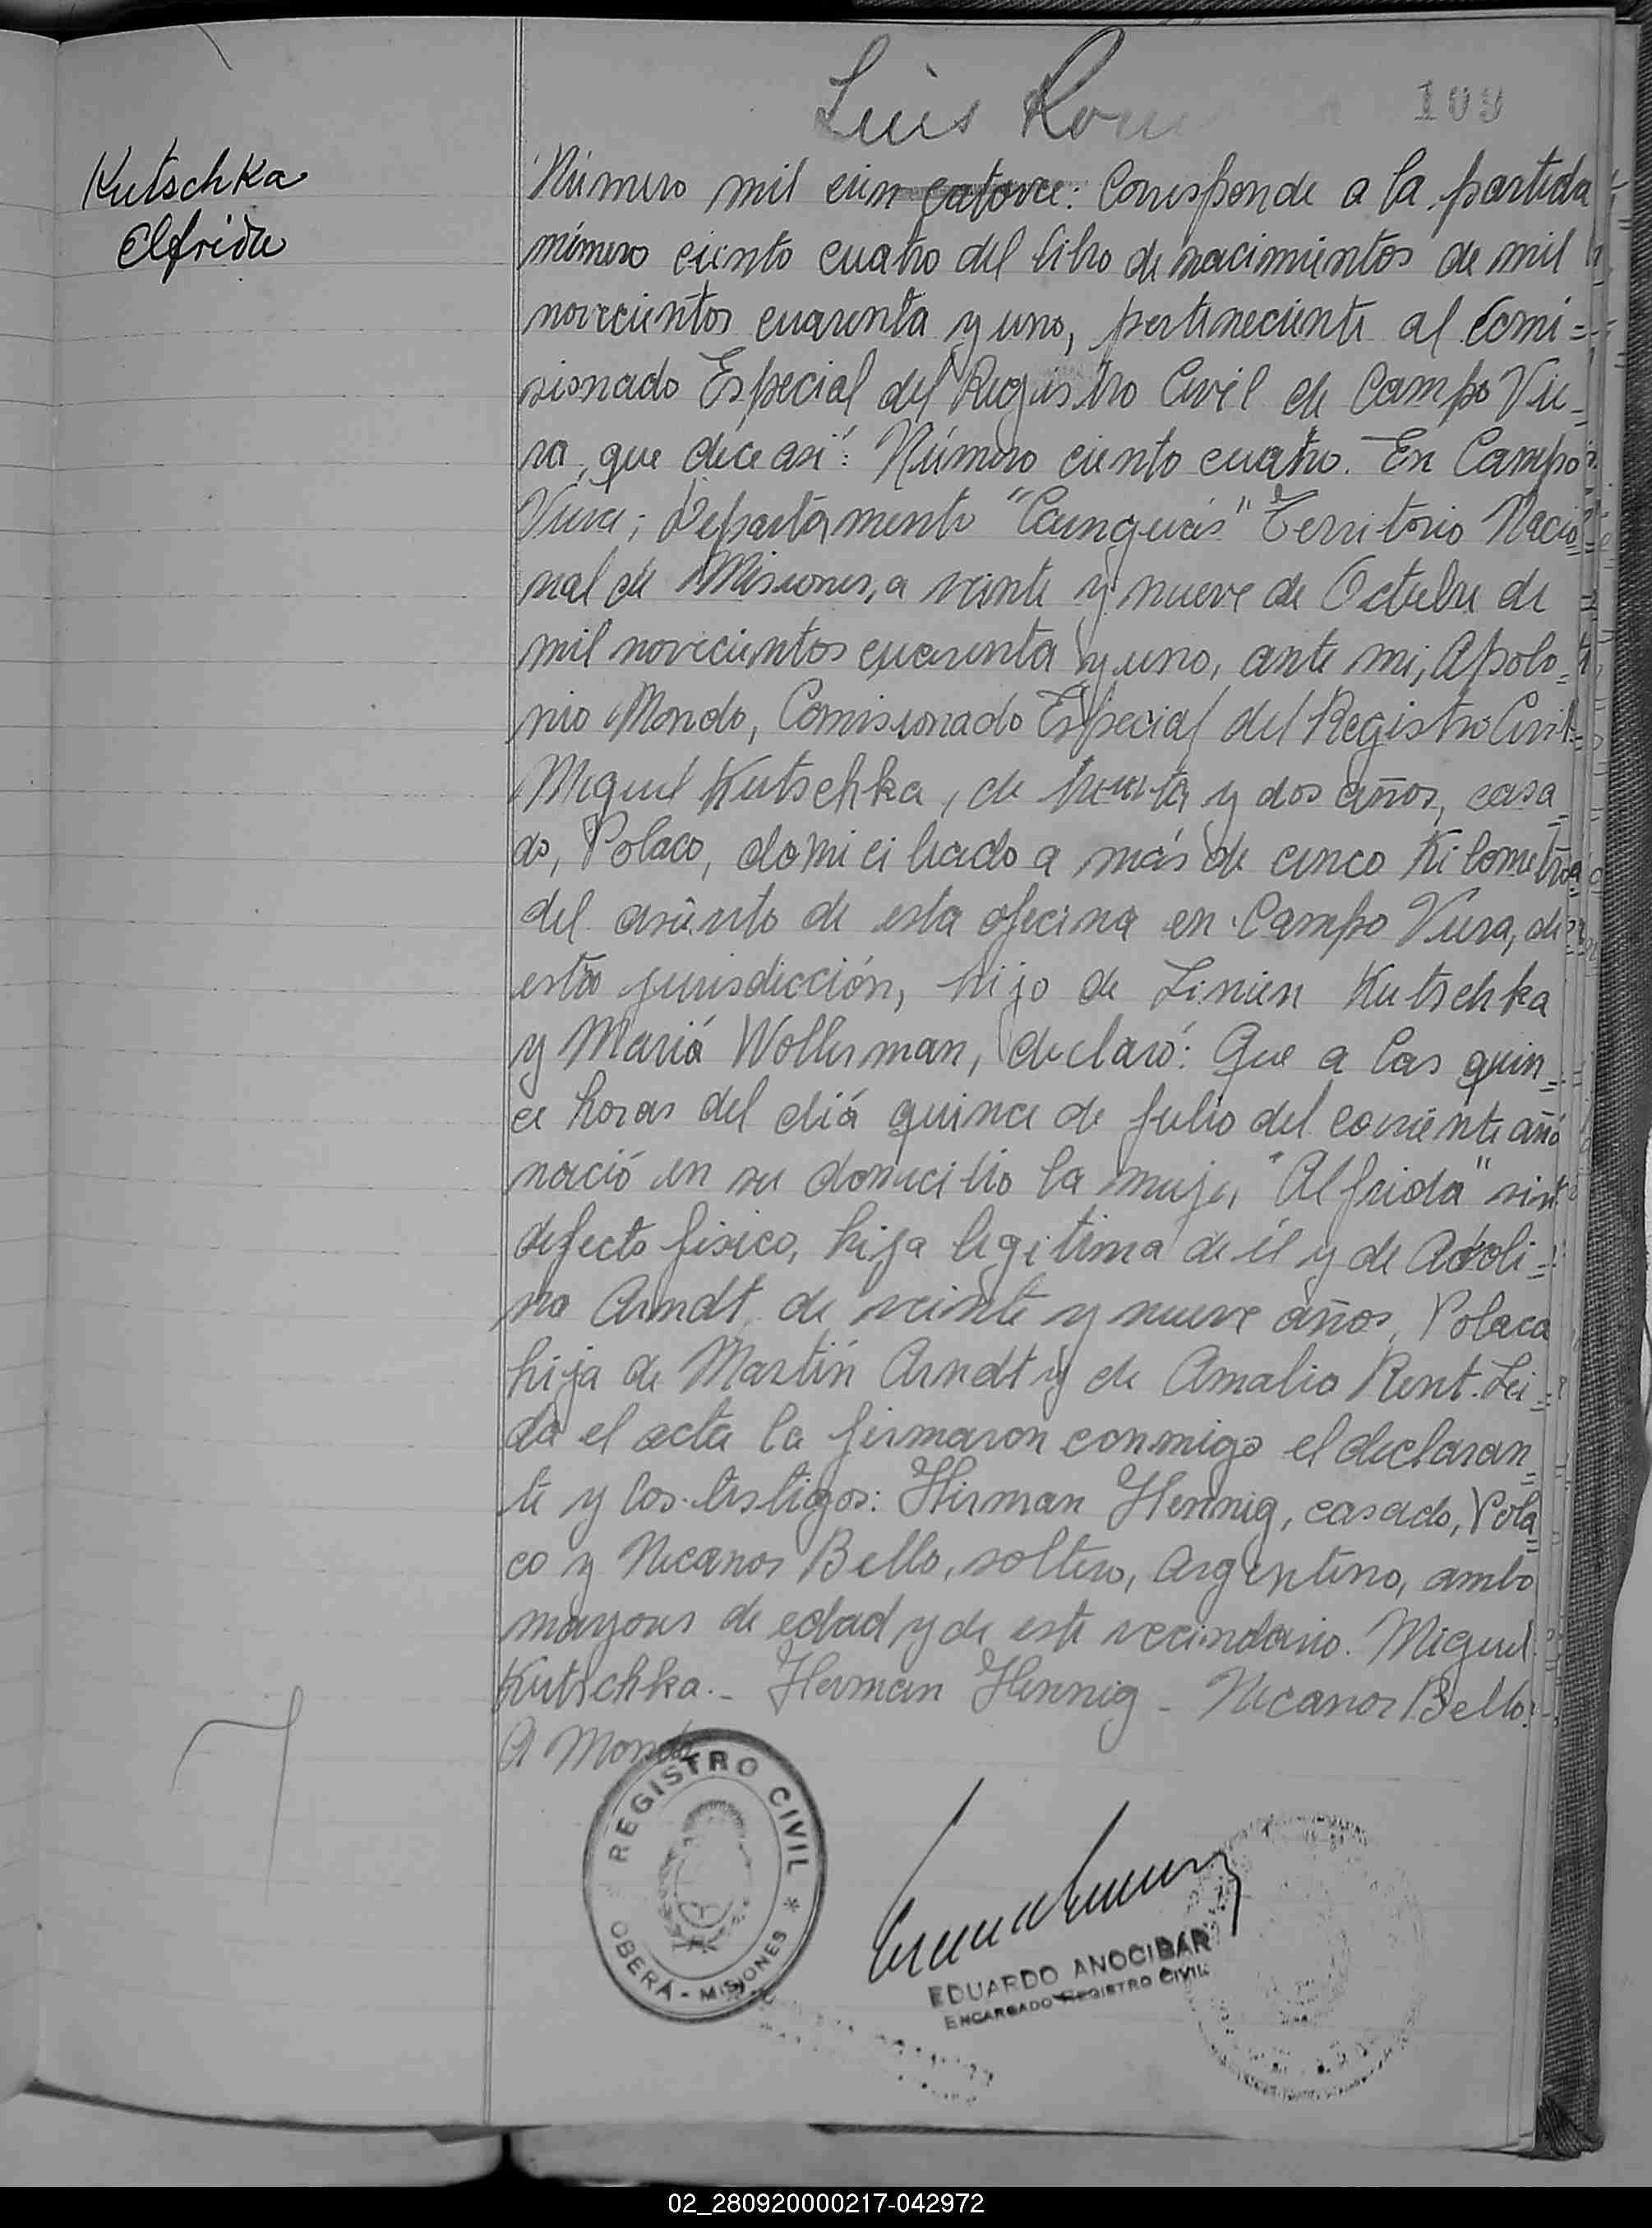 Luis Rom
109
Kutschka
Elfrida
Número mil cien catorce: Corresponde a la partida
número ciento cuatro del libro de nacimientos de mil
novecientos cuarenta y uno, perteneciente al Comi=
sionado Especial del Registro Civil de Campo Vie=
ra, que dice así: Número ciento cuatro. En Campo
Viera; Departamento "Cainguás" Territorio Nacio=
nal de Misiones, a veinte y nueve de Octubre de
mil novecientos cuarenta y uno, ante mi, Apolo=
nio Mondo, Comisionado Especial del Registro Civil=
Miguel Kutschka, de treinta y dos años, casa=
do, Polaco, domiciliado a más de cinco Kilometros
del asiento de esta oficina en Campo Viera, de
esta jurisdicción, hijo de Kutschka
y María Wollerman, declaró: Que a las quin=
ce horas del día quince de julio del corriente año
nació en su domicilio la mujer "Alfrida" sin
defecto fisico, hija legitima de él y de
Arndt, de veinte y nueve años, Polaca
hija de Martín Arndt y de Amalia Rent. Lei=
da el acta la firmaron conmigo el declaran=
te y los testigos: Herman Hennig, casado, Pola=
co y Nicanor Bello, soltero, Argentino, ambo
mayores de edad y de este vecindario. Miguel
Kutschka.- Herman Hennig - Nicanor Bello.
A Mondo
REGISTRO CIVIL
OBERÁ - MISIONES
EDUARDO ANOCIBAR
ENCARGADO REGISTRO CIVIL
02_280920000217-042972